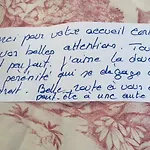 rci pour votre accueil
vos belles attentions. Tou
t parfait. J'aime la dou
sérénité qui se dégage d
roit. Belle route à vous
peut-être à une autre